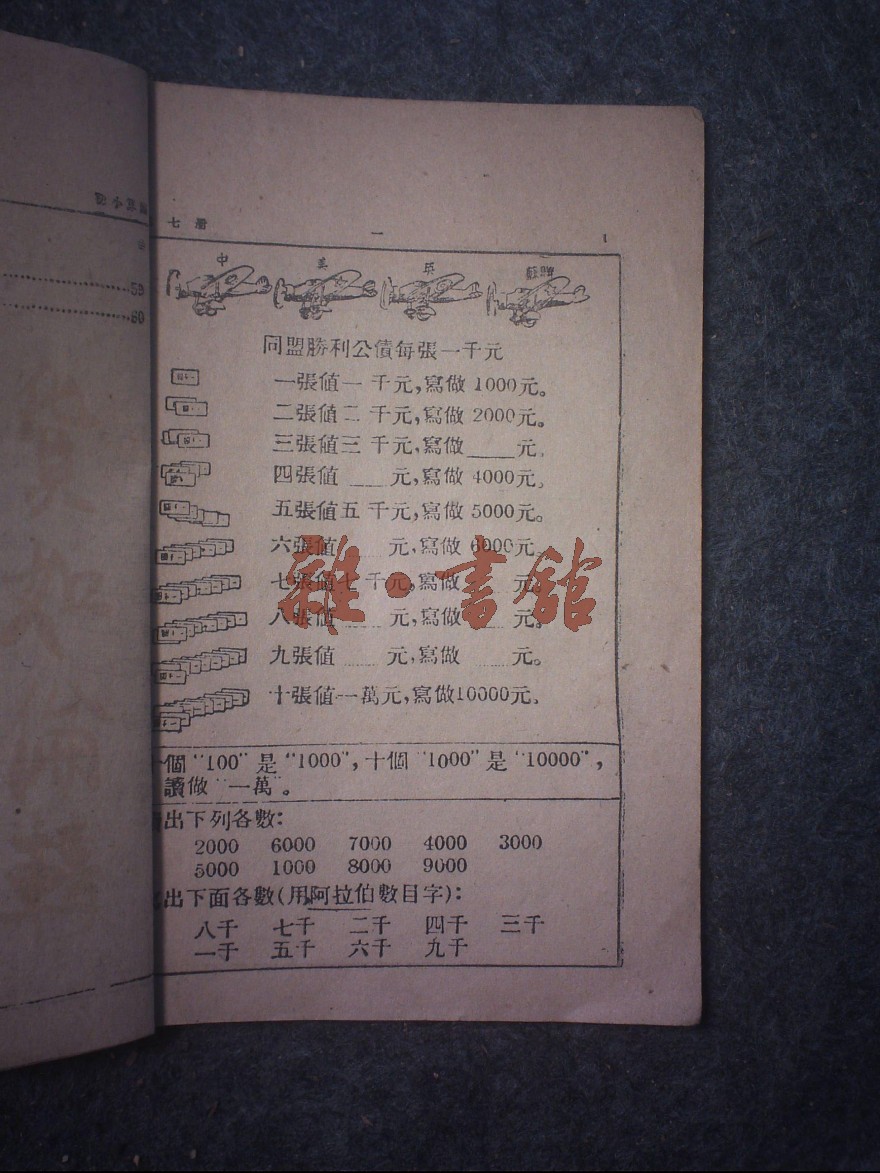 七册 一 1
中 美 英 蘇聯
同盟勝利公債每張一千元
一張値一 千元,寫做 1000元。
二張値二 千元,寫做 2000元。
三張値三 千元,寫做____元。
四張値 ___ 元,寫做 4000元。
五張値五 千元,寫做 5000元。
六張値 ___ 元,寫做 6000元
七張値七 千元,寫做 ___ 元。
八張値 ___ 元,寫做 ___ 元。
九張値 ___ 元,寫做 ___ 元。
十張値一萬元,寫做10000元。
雜·書館
個“100”是“1000”,十個“1000”是“10000”,
讀做“一萬”。
出下列各數:
2000 6000 7000 4000 3000
5000 1000 8000 9000
出下面各數(用阿拉伯數目字):
八千 七千 二千 四千 三千
一千 五千 六千 九千
59
60